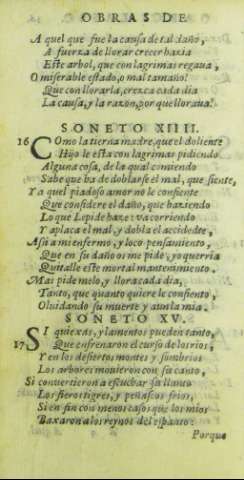 OBRAS DE
A quel que fue la causa de tal daño,
A fuerza de llorar crecer hazia
Este arbol, que con lagrimas regaua,
O miserable estado, o mal tamaño!
Que con llorarla, crezca cada dia
La causa, y la razon, por que lloraua!
SONETO XIIII.
16 COmo la tierna madre, que el doliente
Hijo le està con lagrimas pidiendo
Alguna cosa, de la qual comiendo
Sabe que ha de doblarse el mal, que siente,
Y a quel piadoso amor no le consiente
Que considere el daño, que haziendo
Lo que le pide haze: va corriendo
Y aplaca el mal, y dobla el accidẽte,
Assi a mi enfermo, y loco pensamiento,
Que en su daño os me pide, yo querria
Quitalle este mortal mantenimiento.
Mas pide melo, y llora cada dia,
Tanto, que quanto quiere le consiento,
Oluidando su muerte y aun la mia.
SONETO XV.
17 SI quexas, y lamentos pueden tanto,
Que enfrenaron el curso de los rios,
Y en los desiertos montes y sombrios
Los arboles mouieron con su canto,
Si conuertieron a escuchar su llanto
Los fieros tigres, y peñascos frios,
Si en fin con menos casos que los mios
Baxaron a los reynos del espanto:
Porque